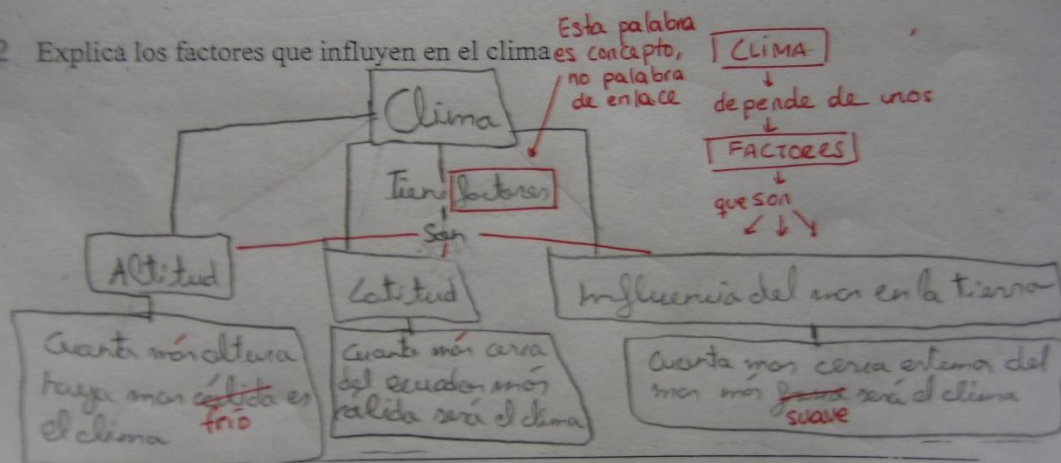 2 Explica los factores que influyen en el clima
Esta palabra
es concepto,
no palabra
de enlace
CLIMA
depende de unos
FACTORES
que son
Clima
Tien factores
Són
Altitud
Latitud
Influencia del mar en la tierra
Cuanta más altura
haya mas cálida es
frío
el clima
Cuanto más cerca
del ecuador más
calida será el clima
Cuanta mas cerca estemos del
mar más será el clima
suave